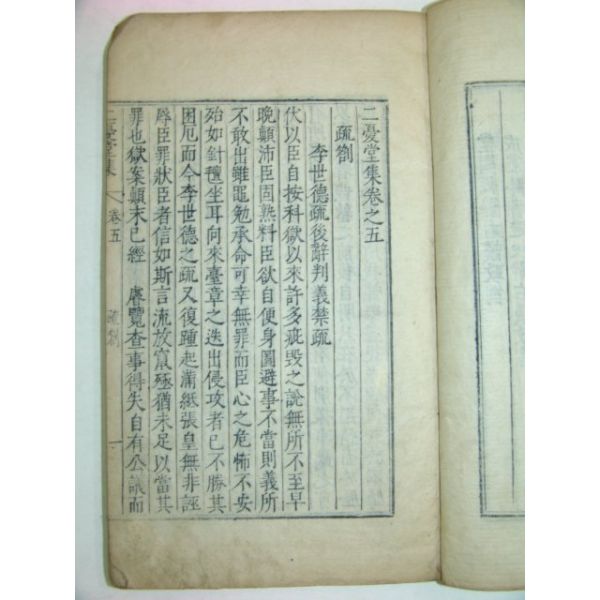 二憂堂集卷之五
疏劄
李世德疏後辭判義禁疏
伏以臣自按科獄以來許多疵毁之說無所不至早
晩顛沛臣固熟料臣欲自便身圖避事不當則義所
不敢出雖黽勉承命可幸無罪而臣心之危怖不安
殆如針氊坐耳向來臺章之迭出侵攻者已不勝其
困厄而今李世德之疏又復踵起滿紙張皇無非誣
辱臣罪狀臣者信如斯言流放竄殛猶未足以當其
罪也獄案顛末已經 睿覽查事得失自有公議而
二憂堂集
卷五
疏劄
一